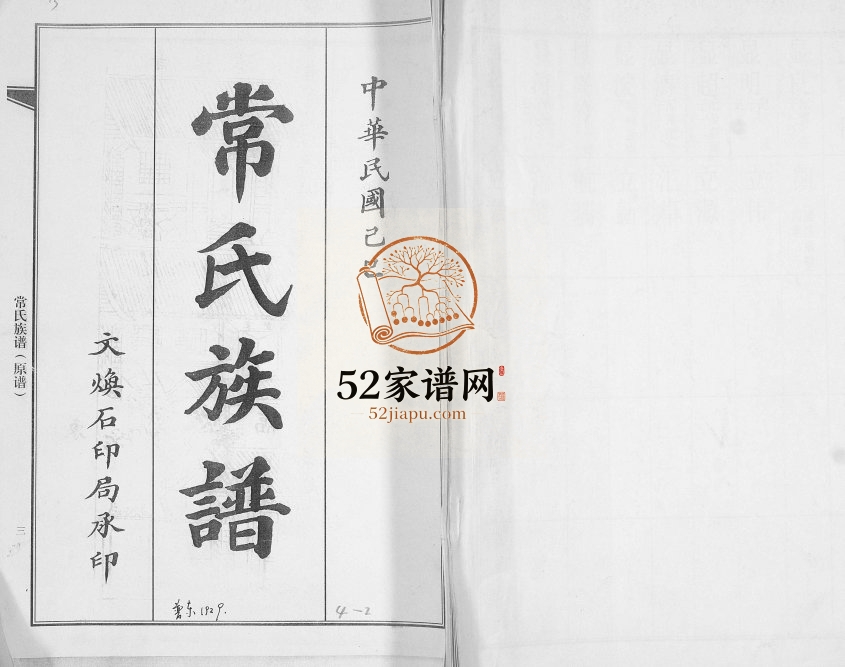 中華民國己巳
常氏族譜
文煥石印局承印
常氏族谱（原谱）
三
1929.
4-2
52家谱网
52jiapu.com